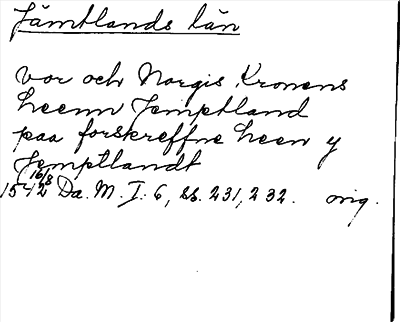 Jämtlands län
vor och Norgis Kronens
heenn Jemptland
paa forskreffne heen y
Jemptlandt
16/8
1542 Da. M. I. 6, ss. 231, 232. orig.